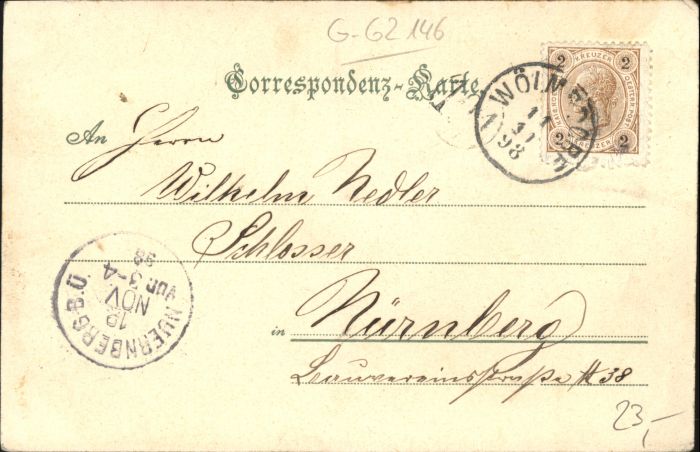 G-G2 146
Correspondenz-Karte
2 KREUZER 2
2 KREUZER 2
WÖLM
11
11
98
An Herrn
Wilhelm Nedler
Schlosser
in Nürnberg
Bauvereinsstraße # 38
NUERNBERG 8.O.
12
NOV.
VOR. 3-4
98
23,-